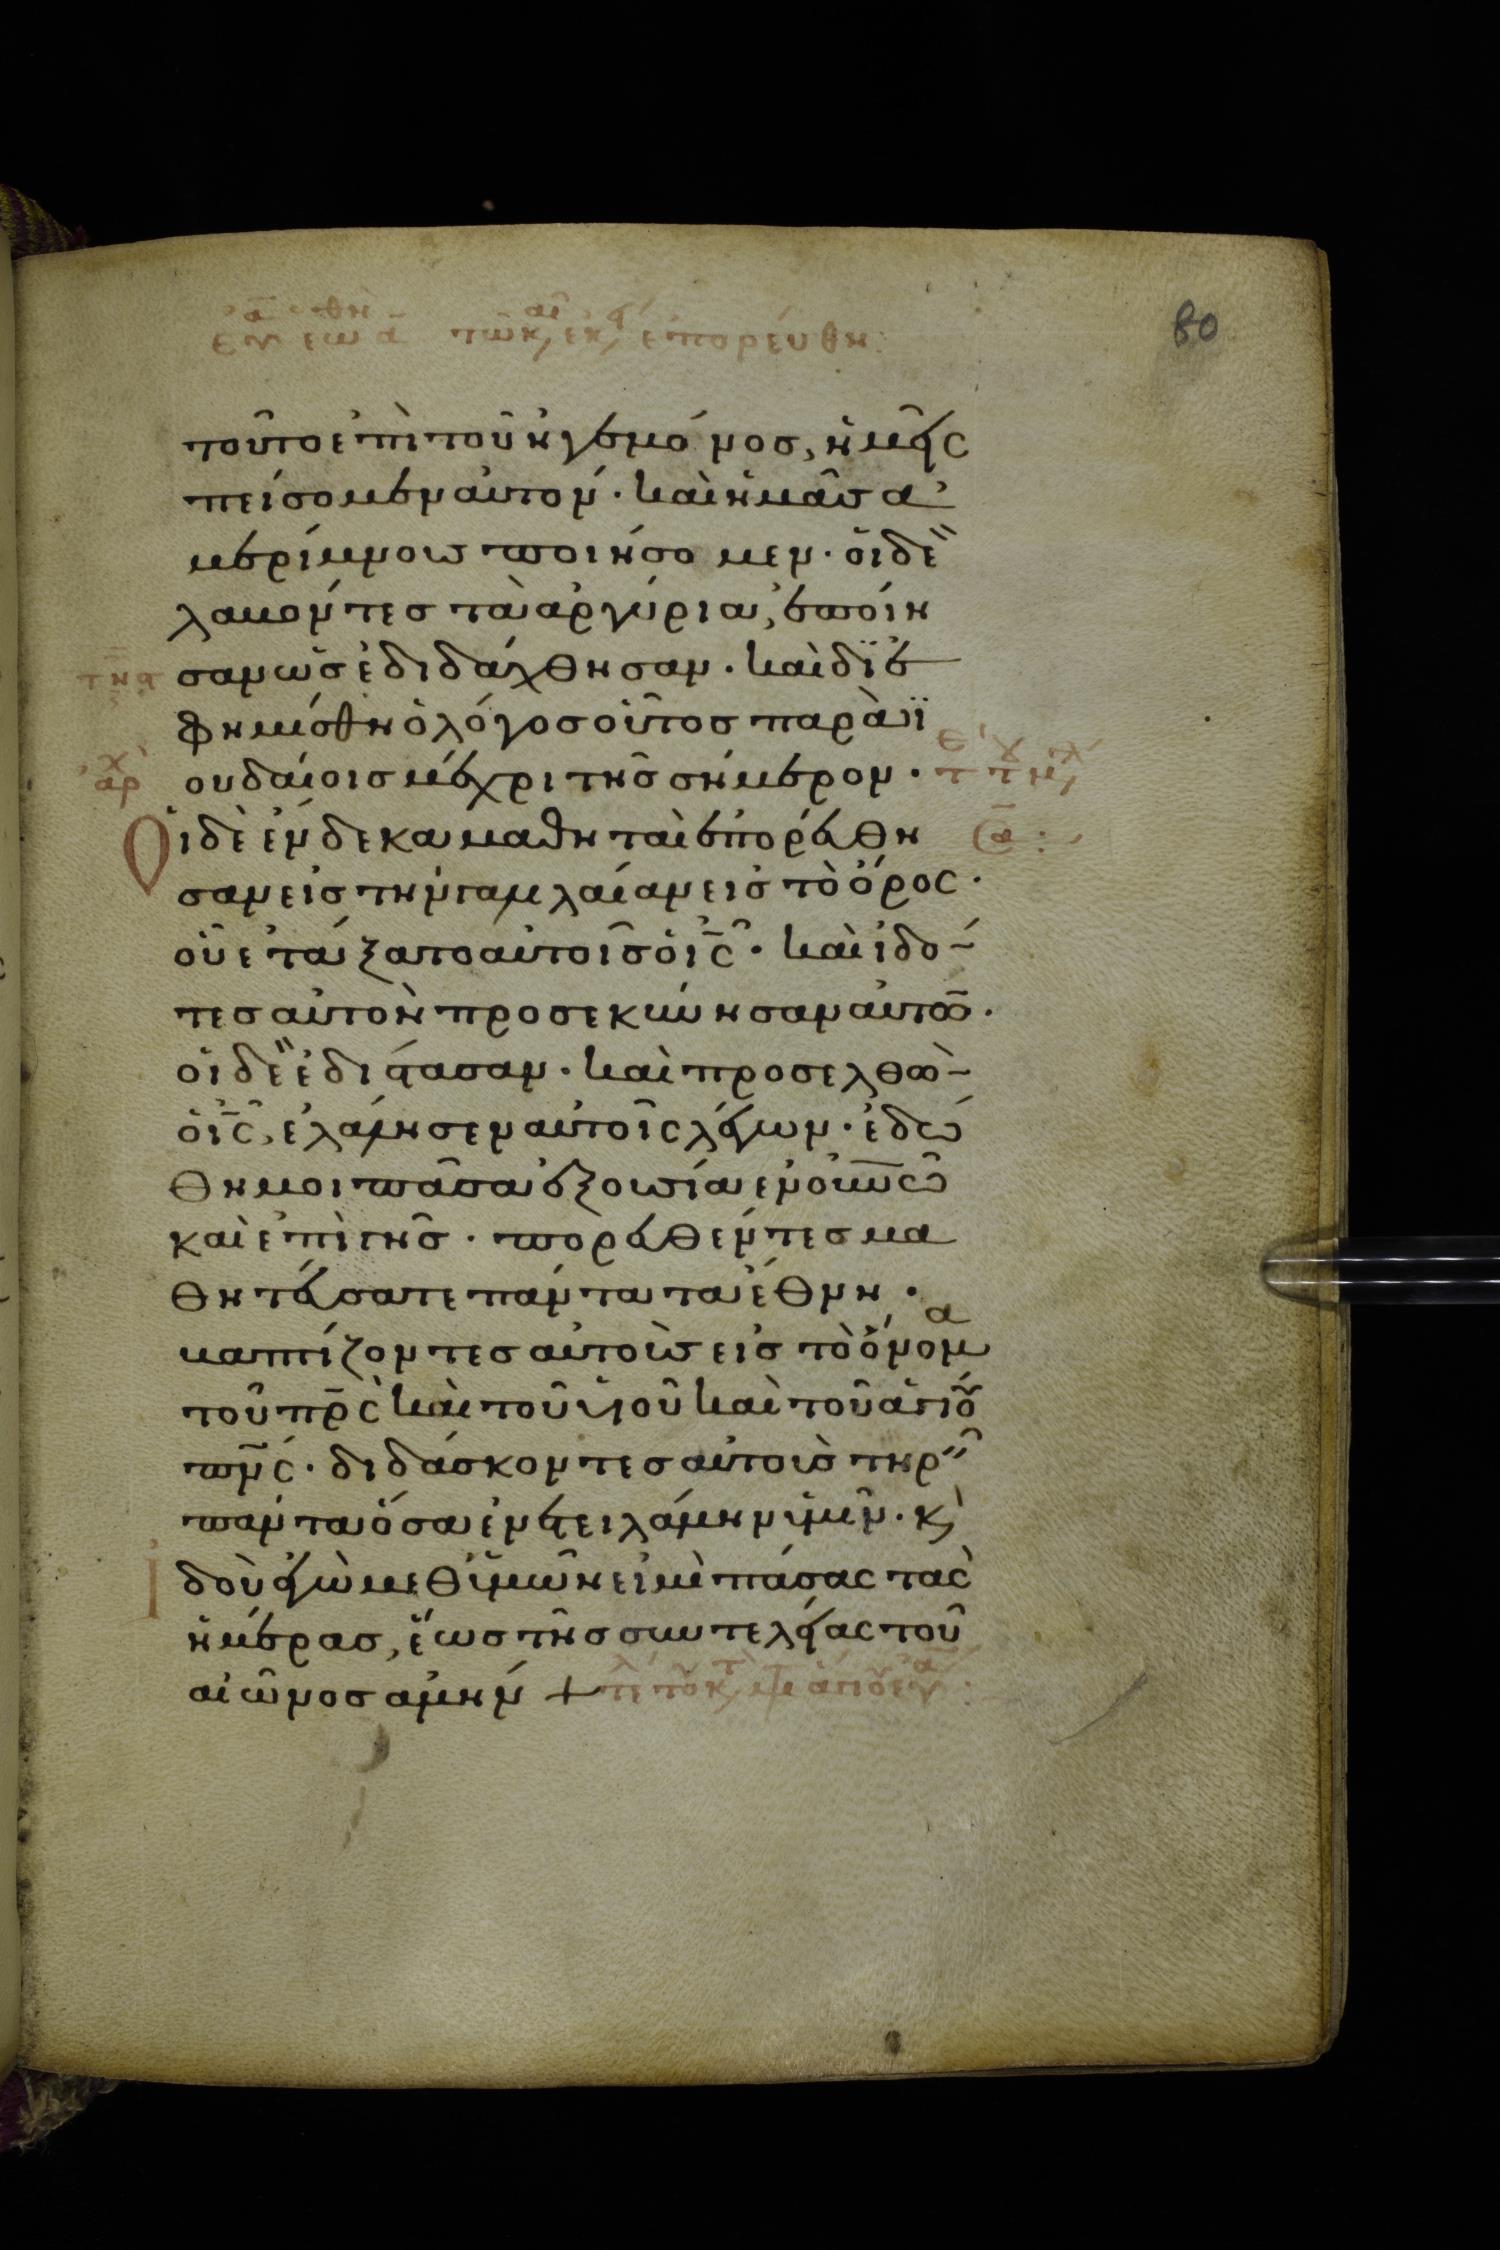 80
τοῦτο ἐπὶ τοῦ ἡγεμόνος, ἡμεῖς
πείσομεν αὐτόν· καὶ ἡμᾶς ἀ
μερίμνους ποιήσομεν· οἱ δὲ
λαβόντες τὰ ἀργύρια, ἐποίη
σαν ὡς ἐδιδάχθησαν· καὶ διε
φημίσθη ὁ λόγος οὗτος παρὰ ἰ
ουδαίοις μέχρι τῆς σήμερον·
Οἱ δὲ ἕνδεκα μαθηταὶ ἐπορεύθη
σαν εἰς τὴν γαλιλαίαν εἰς τὸ ὄρος·
οὗ ἐτάξατο αὐτοῖς ὁ ις· καὶ ἰδό
τες αὐτὸν προσεκύνησαν αὐτῶ·
οἱ δὲ ἐδίστασαν· καὶ προσελθὼ
ὁ ις, ἐλάλησεν αὐτοῖς λέγων· ἐδό
θη μοι πᾶσα ἐξουσία ἐν οὐνῶ
καὶ ἐπὶ γῆς· πορευθέντες μα
θητεύσατε πάντα τὰ ἔθνη·
βαπτίζοντες αὐτοὺς εἰς τὸ ὄνομα
τοῦ πρς καὶ τοῦ υἱοῦ καὶ τοῦ ἁγίου
πνς· διδάσκοντες αὐτοὺς τηρεῖ
πάντα ὅσα ἐνετειλάμην ὑμῖν· κ
Ιδοὺ ἐγὼ μεθ ὑμῶν εἰμὶ πάσας τὰς
ἡμέρας, ἕως τῆς συντελείας τοῦ
αἰῶνος ἀμήν +